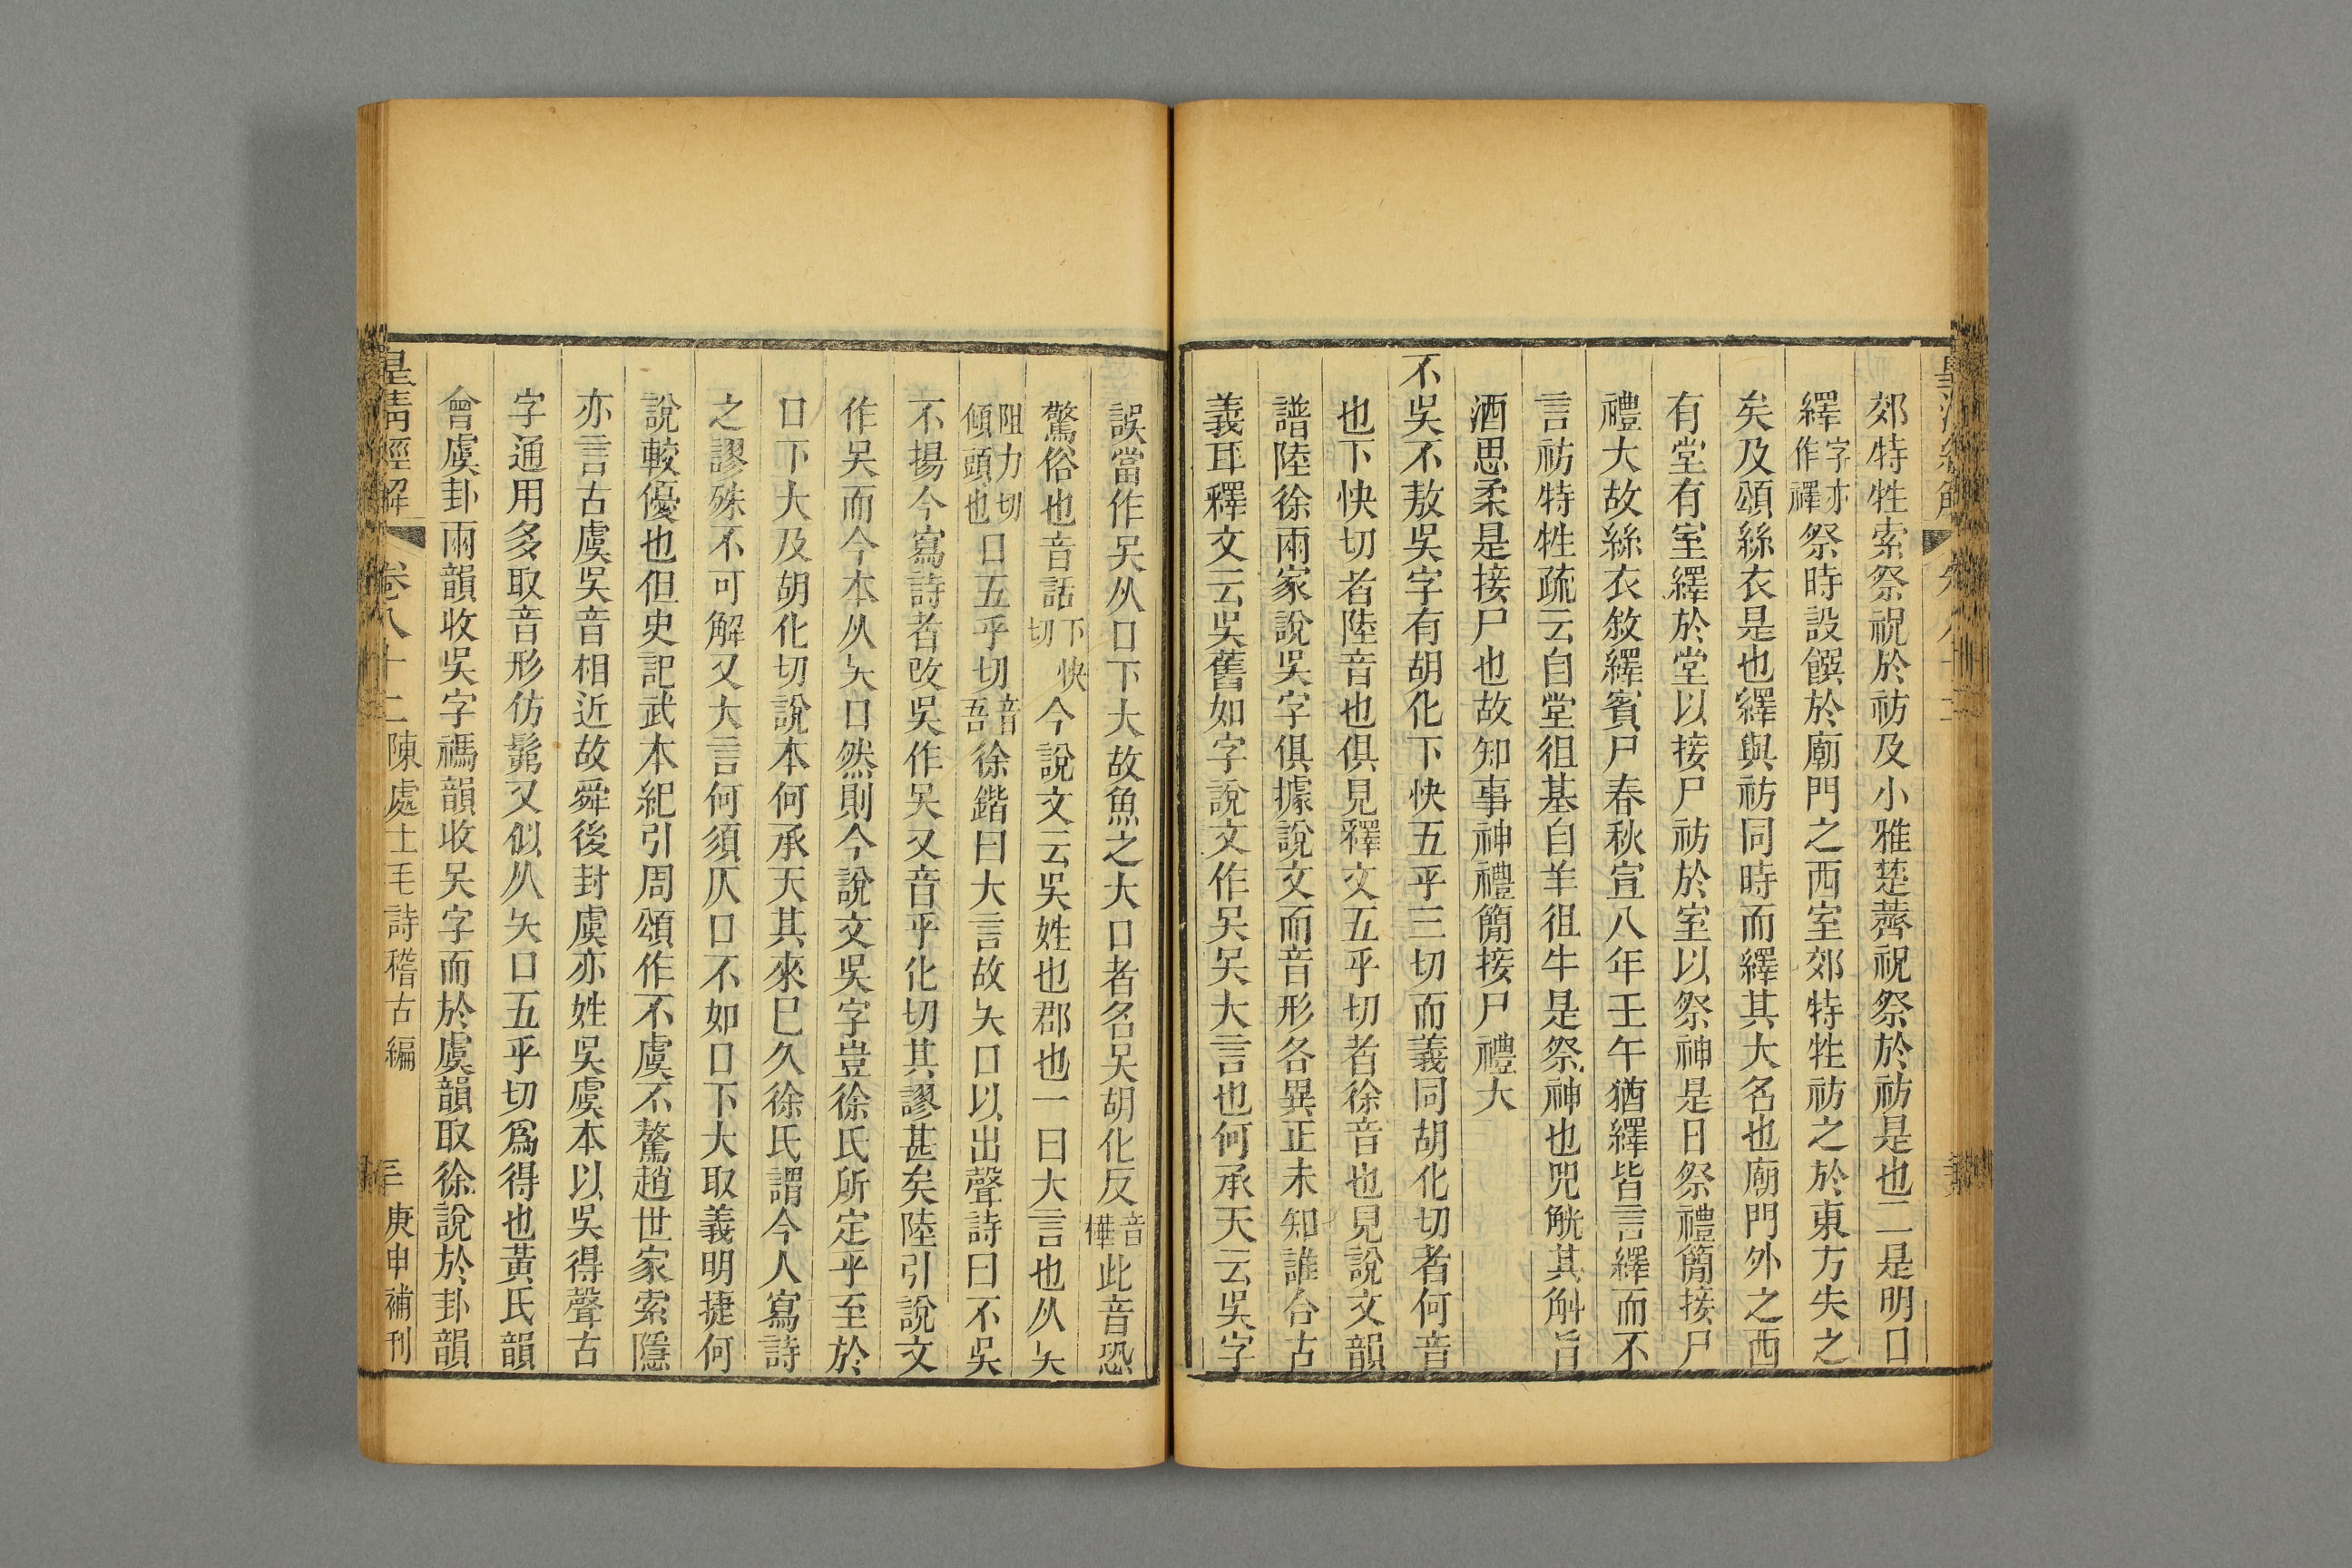 郊特牲索祭祝於祊及小雅楚薺祝祭於祊是也二是明日
繹字亦作禪祭時設饌於廟門之西室郊特牲祊之於東方失之
矣及頌絲衣是也繹與祊同時而繹其大名也廟門外之西
有堂有室繹於堂以接尸祊於室以祭神是日祭禮簡接尸
禮大故絲衣敘繹賓尸春秋宣八年壬午猶繹皆言繹而不
言祊特牲疏云自堂徂基自羊徂牛是祭神也兕觥其斛旨
酒思柔是接尸也故知事神禮簡接尸禮大
不吳不敖吳字有胡化下快五乎三切而義同胡化切者何音
也下快切者陸音也俱見釋文五乎切者徐音也見說文韻
譜陸徐兩家說吳字俱據說文而音形各異正未知誰合古
義耳釋文云吳舊如字說文作吴吴大言也何承天云吳字
誤當作吴从口下大故魚之大口者名吴胡化反音樺此音恐
驚俗也音話下快切今說文云吳姓也郡也一曰大言也从夨
阻力切傾頭也口五乎切音吾徐鍇曰大言故夨口以出聲詩曰不吳
不揚今寫詩者改吳作吴又音乎化切其謬甚矣陸引說文
作吴而今本从夨口然則今說文吳字豈徐氏所定乎至於
口下大及胡化切說本何承天其來巳久徐氏謂今人寫詩
之謬殊不可解又大言何須仄口不如口下大取義明捷何
說較優也但史記武本紀引周頌作不虞不驁趙世家索隱
亦言古虞吳音相近故舜後封虞亦姓吳虞本以吳得聲古
字通用多取音形仿髴又似从夨口五乎切爲得也黃氏韻
會虞卦兩韻收吳字禡韻收吴字而於虞韻取徐說於卦韻
皇清經解 卷八十二 陳處士毛詩稽古編 三 庚申補刊